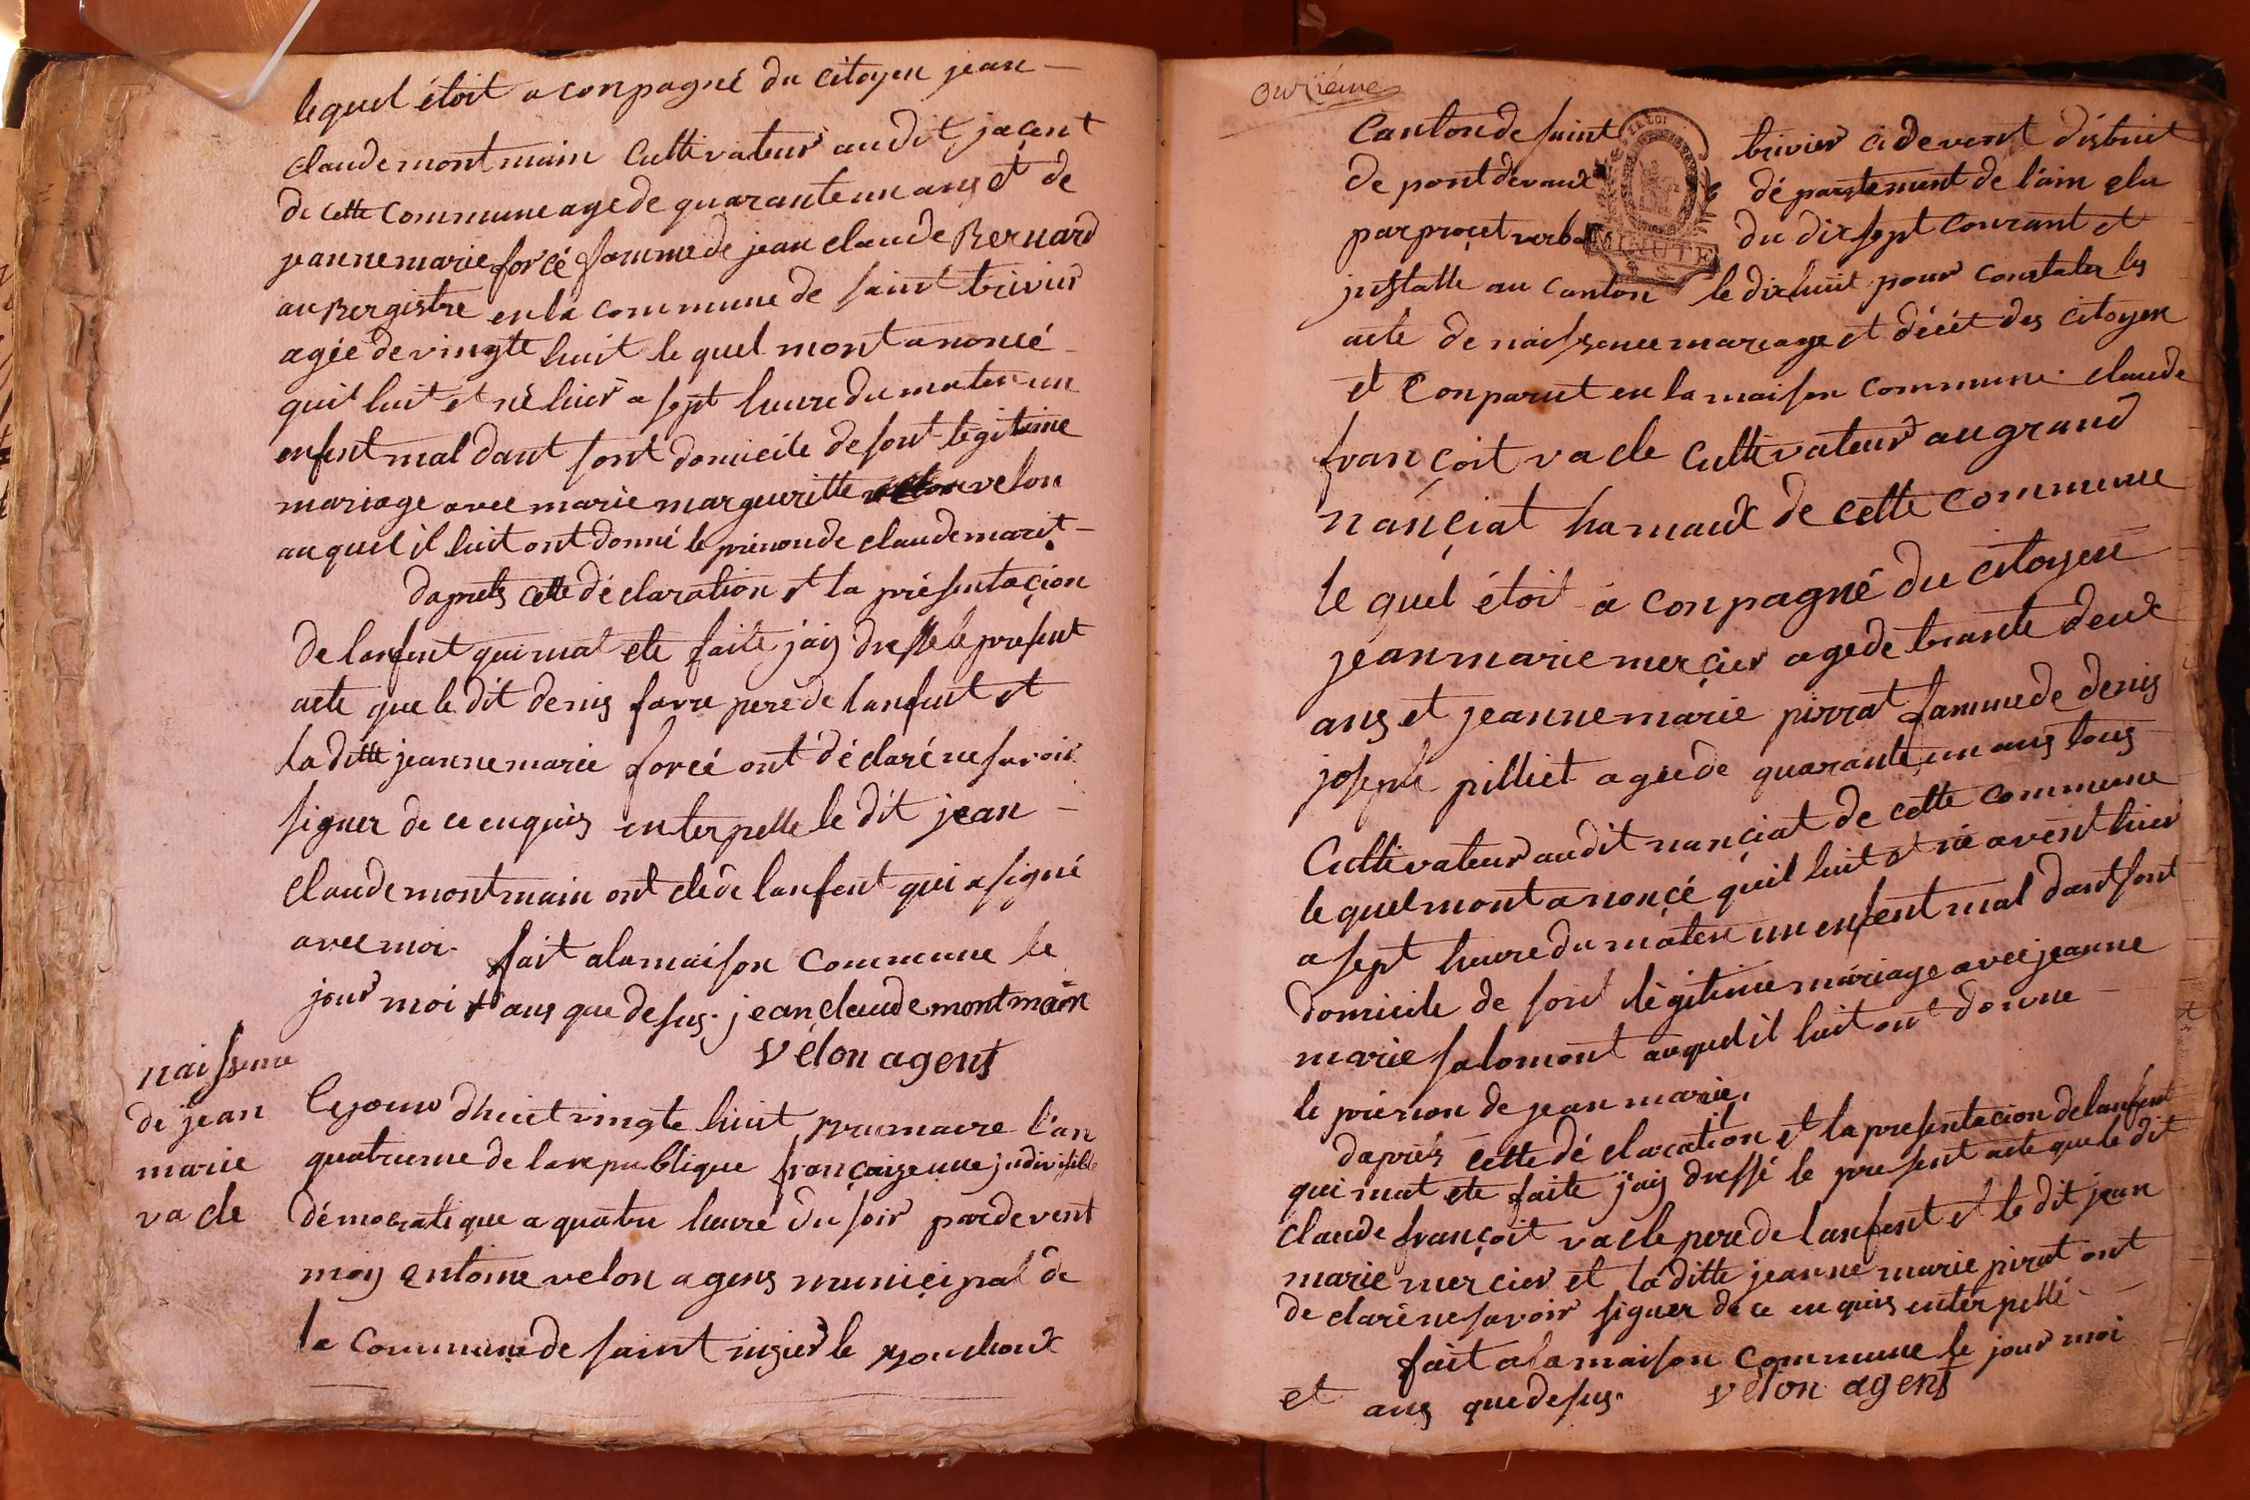 lequel étoit a conpagné du citoyen jean —
claude montmain Cultivateur audit jacent
de cette commune age de quarante un ans et de
jeanne marie forcé famme de jean claude Bernard
au Rergistre en la commune de saint trivier
agée de vingte huit le quel mont anoncé
quil luit et né hier a sept heure du maten un
enfent mal dant sont domicile de sont légitime
mariage avec marie margueritte velon
au quel il luit ont donné le prénon de claude marit —
daprets cette déclaration et la présentaçion
de lanfent qui mat ete faite jaij dressé le present
acte que le dit denis favre pere de lanfent et
la ditte jeanne marie forcé ont déclaré ne savoir
signer de ce enquis enterpelle le dit jean —
claude montmain ont cle de lanfent qui a signé
avec moi. fait a la maison commune le
jour moi et ans que desus. jean claude montmain
velon agent
naissence
de jean
marie
vacle
Cejourd dhuit vingte huit brumaire l'an
quatrieme de la republique françaize une jndivisible
démocratique a quatre heure du soir pardevent
moij entoine velon agens muniçipal de
la commune de saint nizier le Bouchoux
onzième
MINUTE
canton de saint trivier cidevent district
de pontdevaux département de l'ain elu
par proçet verbal du dix sept courant et
jnstalle au canton le dixhuit pour constater les
acte de naissence mariage et décét des citoyen
et Conparut en la maison commune. claude
françoit vacle cultivateur au grand
nançiat hamaux de cette commune
le quel étoit a conpagné du citoyen
jean marie merçier age de trante deux
ans et jeanne marie pirrat famme de denis
joseph pilliet agée de quarante un ans tous
Cultivateur audit nançiat de cette commune
le quel mont anonçé quil luit et né avent hier
a sept heure du maten un enfent mal dant sont
domicile de sont légitime mariage avec jeanne
marie salomont auquel il luit ont donne —
le prénon de jean marie.
daprés cette déclaration et la presentacion de lanfent
qui mat ete faite j'aij dressé le present acte que le dit
claude françoit vacle pere de lanfent et le dit jean
marie mercier et la ditte jeanne marie pirat ont
de claré ne savoir signer de ce enquis enterpellé —
fait a la maison commune le jour moi
et ans que desus. velon agent